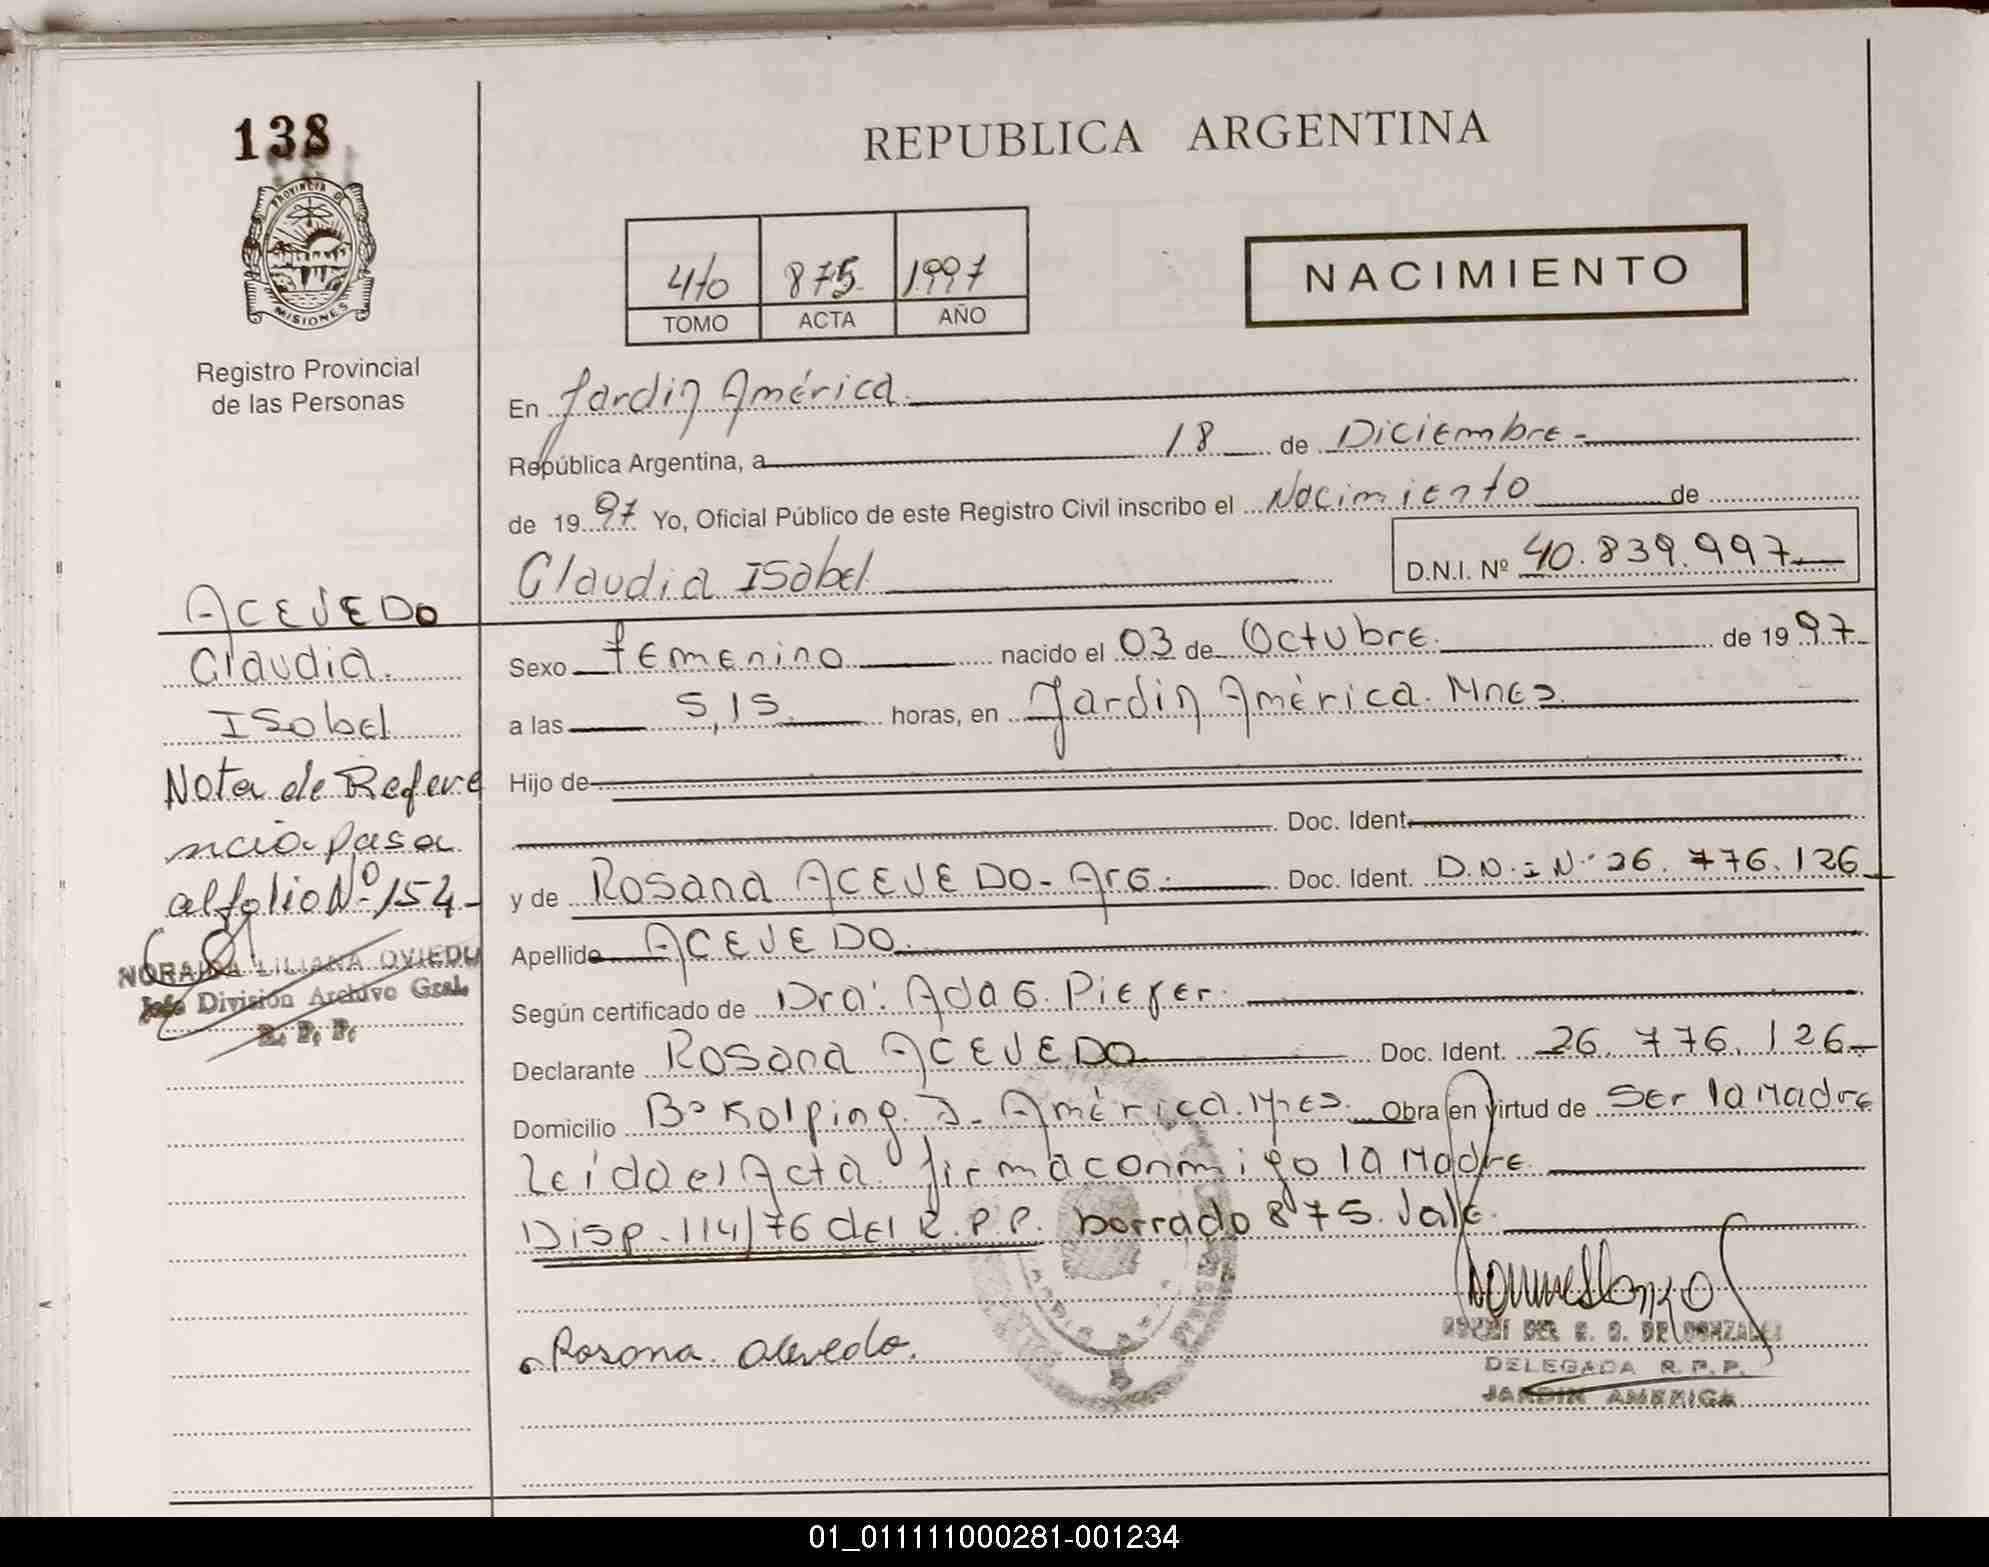 138
PROVINCIA DE
MISIONES
Registro Provincial
de las Personas
REPUBLICA ARGENTINA
4to 875 1997
TOMO ACTA AÑO
NACIMIENTO
En Jardin América
República Argentina, a 18 de Diciembre
de 1997 Yo, Oficial Público de este Registro Civil inscribo el Nacimiento de
Claudia Isabel D.N.I. Nº 40.839.997
ACEVEDO
Claudia
Isabel
Nota de Refere
ncia pasa
al folio Nº 154
NORAIDA LILIANA OVIEDO
Jefe División Archivo Gral.
R. P. P.
Sexo femenino nacido el 03 de Octubre de 1997
a las 5,15 horas, en Jardin América. Mnes.
Hijo de
Doc. Ident.
y de Rosana ACEVEDO - Arg. Doc. Ident. D.N.I Nº 26.776.126
Apellido ACEVEDO
Según certificado de Dra. Ada G. Piefer
Declarante Rosana ACEVEDO Doc. Ident. 26.776.126
Domicilio Bº Kolping. J- América. Mnes. Obra en virtud de Ser la Madre
Leída el Acta firma conmigo la Madre
Disp. 114/76 del R.P.P. borrado 875. Vale.
Rosana. Acevedo.
DE GONZALEZ
DELEGADA R. P. P.
JARDIN AMERICA
01_011111000281-001234